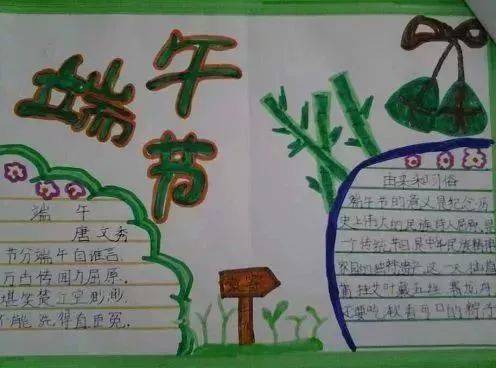 端午节
端 午
唐 文秀
节分端午自谁言
万古传闻为屈原.
堪笑楚江空渺渺
不能洗得直臣冤.
由来和习俗
端午节的意义是纪念历
史上伟大的民族诗人屈原,是
一个传统节日是中华民族精神
家园的独特遗产,这一天
插艾叶戴五丝 赛龙舟
还要吃 可口的粽子